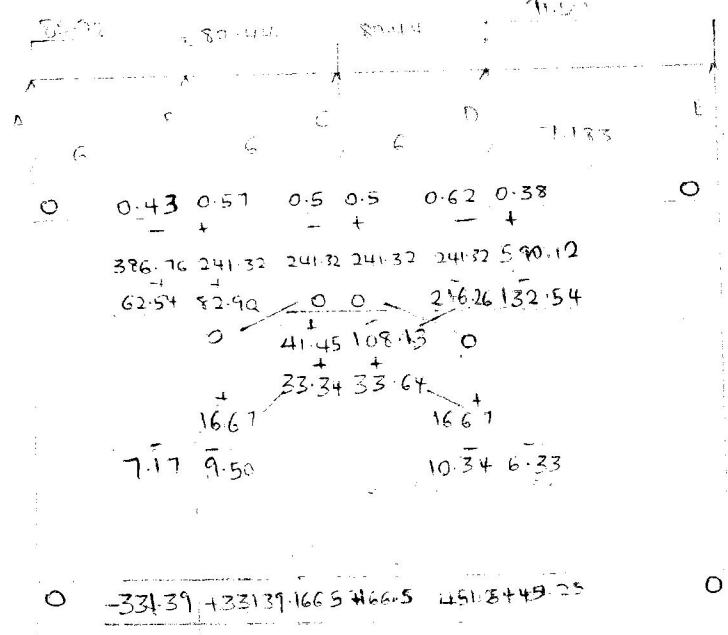 80.44 80.44
A C D
6 6 6 7.183
0 0.43 0.57 0.5 0.5 0.62 0.38 0
- + - + - +
386.76 241.32 241.32 241.32 241.32 590.12
+ + -  -
62.54 82.90 0 0 216.26 132.54
+ -
0 41.45 108.13 0
+ +
33.34 33.64
+ +
16.67 16.67
- - - -
7.17 9.50 10.34 6.33
0 -331.39 +331.39 166.5 +166.5 0